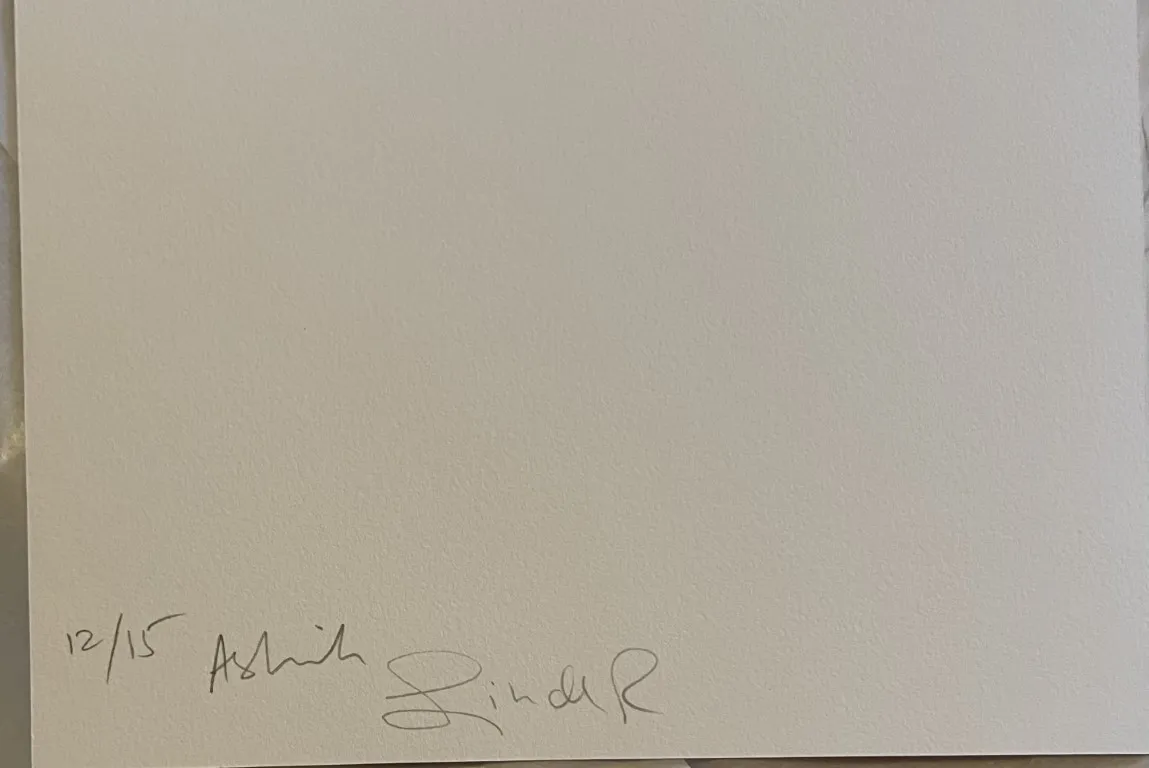 12/15 Ashish
Linda R